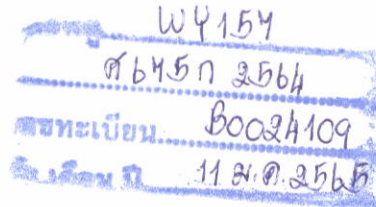 WY157
ศ6451ก 2564
เลขทะเบียน B0024109
วัน เดือน ปี 11 ม.ค. 2565